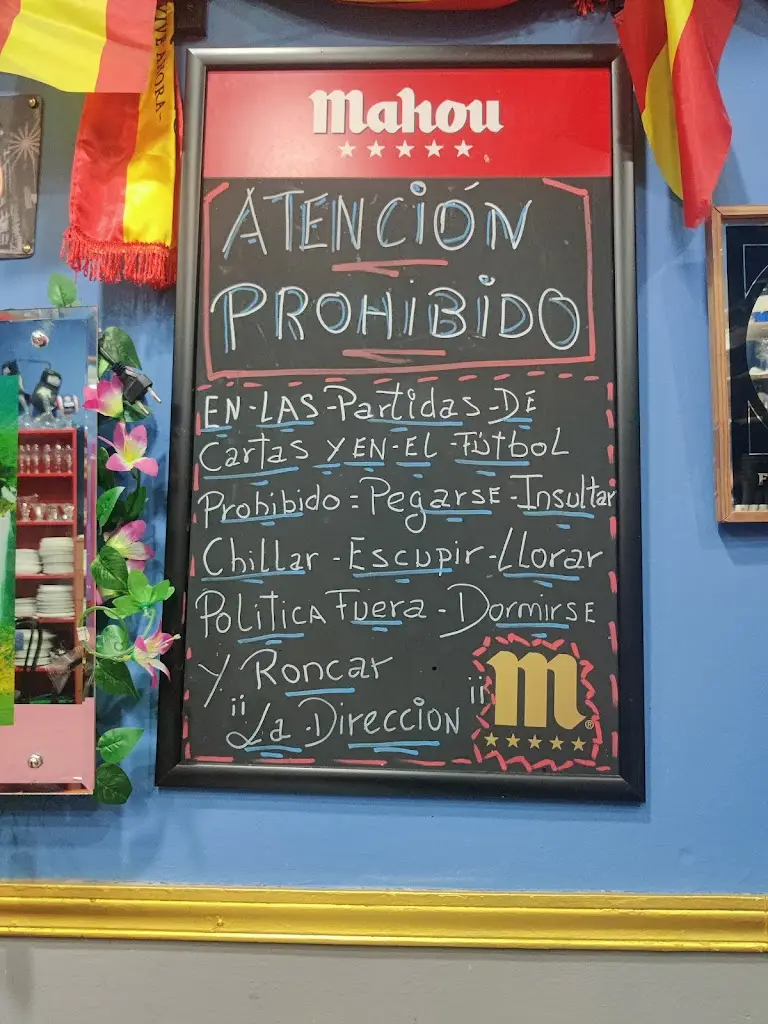 VIVE AHORA-
Mahou
ATENCIÓN
PROHIBIDO
EN-LAS-Partidas-DE
Cartas Y EN-EL-FÚtboL
Prohibido: Pegarse-Insultar
Chillar-Escupir-Llorar
PolíticA Fuera-DormirsE
Y Roncar
¡¡La-DireccioN ¡¡
m
®